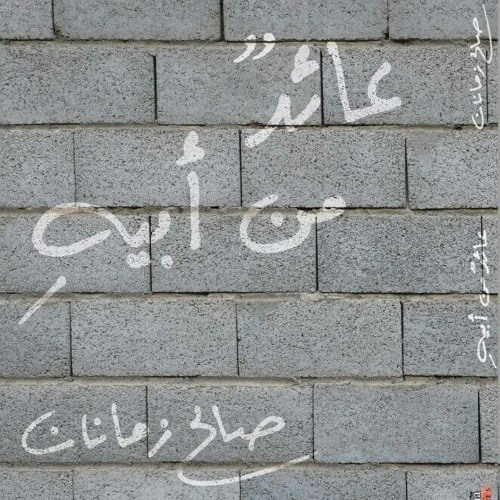 عائدٌ
من أبيهِ
صالح زمانان
صالح زمانان
عائدٌ من أبيهِ